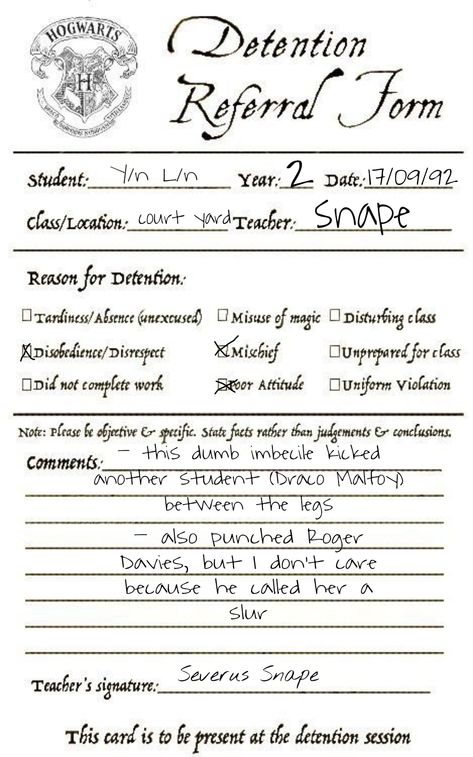 HOGWARTS
Detention
Referral Form
Student: Y/n L/n Year: 2 Date: 17/09/92
Class/Location: court yard Teacher: Snape
Reason for Detention:
Tardiness/Absence (unexcused) Misuse of magic Disturbing class
Disobedience/Disrespect Mischief Unprepared for class
Did not complete work Poor Attitude Uniform Violation
Note: Please be objective & specific. State facts rather than judgements & conclusions.
Comments: - this dumb imbecile kicked
another student (Draco Malfoy)
between the legs
- also punched Roger
Davies, but I don't care
because he called her a
slur
Teacher's signature: Severus Snape
This card is to be present at the detention session